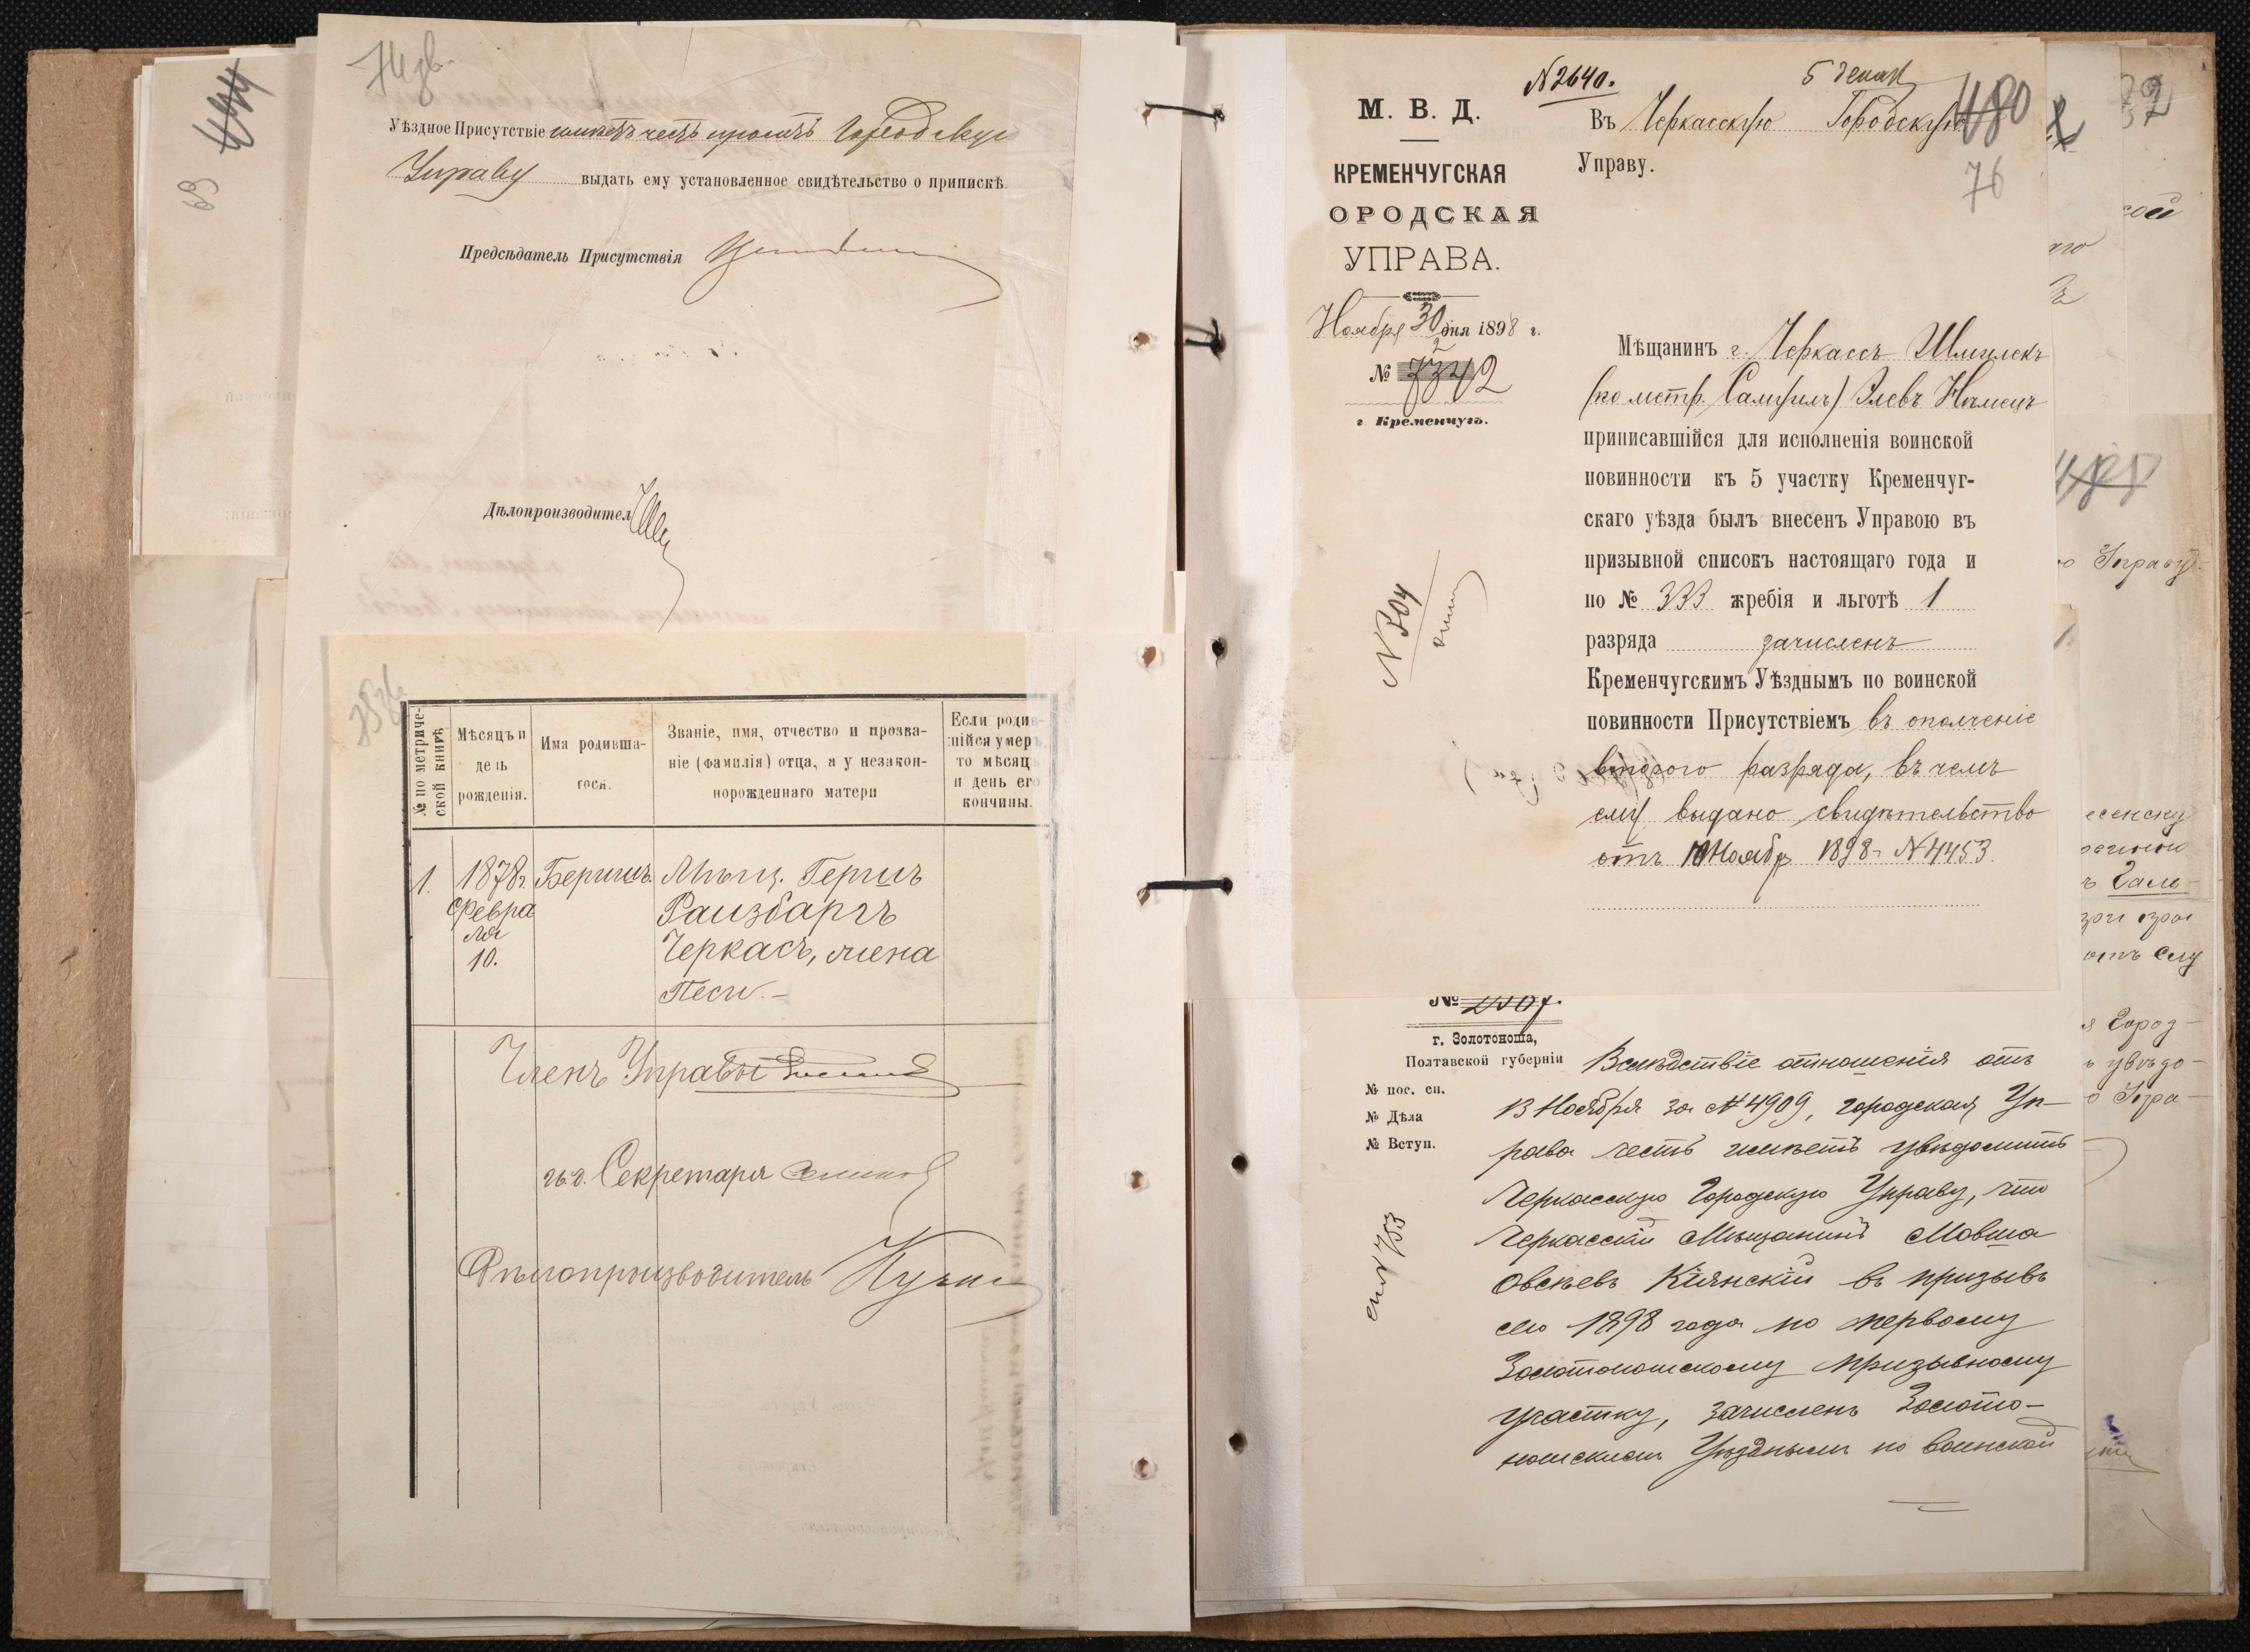 74 зв.
Уѣздное Присутствіе имѣетъ честь просить Городскую
Управу выдать ему установленное свидѣтельство о припискѣ.
Предсѣдатель Присутствія
Дѣлопроизводител
444
69
75 зв.
№ по метриче-
ской книгѣ
Мѣсяцъ и
день
рожденія.
Имя родивша-
гося.
Званіе, имя, отчество и прозва-
ніе (фамилія) отца, а у незакон-
норожденнаго матери
Если родив-
шійся умеръ
то мѣсяцъ
и день его
кончины.
1.
1878 г.
Февра
ля
10.
Беришъ.
Мѣщ. Гершъ
Раизбаргъ
Черкасъ, жена
Песи.-
Членъ Управы
и. д. Секретаря
Дѣлопроизводитель
№ 2640.
5 декаб
480
76
М. В. Д.
КРЕМЕНЧУГСКАЯ
ОРОДСКАЯ
УПРАВА.
Ноября 30 дня 1898 г.
№
г Кременчугъ.
Въ Черкасскую Городскую
Управу.
Мѣщанинъ г. Черкассъ Шмилекъ
(по метр. Самуилъ) Элевъ Нѣмецъ
приписавшійся для исполненія воинской
повинности къ 5 участку Кременчуг-
скаго уѣзда былъ внесенъ Управою въ
призывной списокъ настоящаго года и
по № 333 жребія и льготѣ 1
разряда зачисленъ
Кременчугскимъ Уѣзднымъ по воинской
повинности Присутствіемъ въ ополченіе
второго разряда, въ чемъ
ему выдано свидѣтельство
отъ 10 Ноябр 1898 г. № 4453.
№ 304
г. Золотоноша,
Полтавской губерніи
№ пос. сп.
№ Дѣла
№ Вступ.
Вслѣдствіе отношенія отъ
13 Ноября за № 4909, городская Уп-
рава честь имѣетъ увѣдомить
Черкасскую Городскую Управу, что
Черкасскій Мѣщанинъ Мовша
Овсѣевъ Кіянскій въ призывъ
сего 1898 года по первому
Золотоношскому призывному
участку, зачисленъ Золото-
ношскимъ Уѣзднымъ по воинской